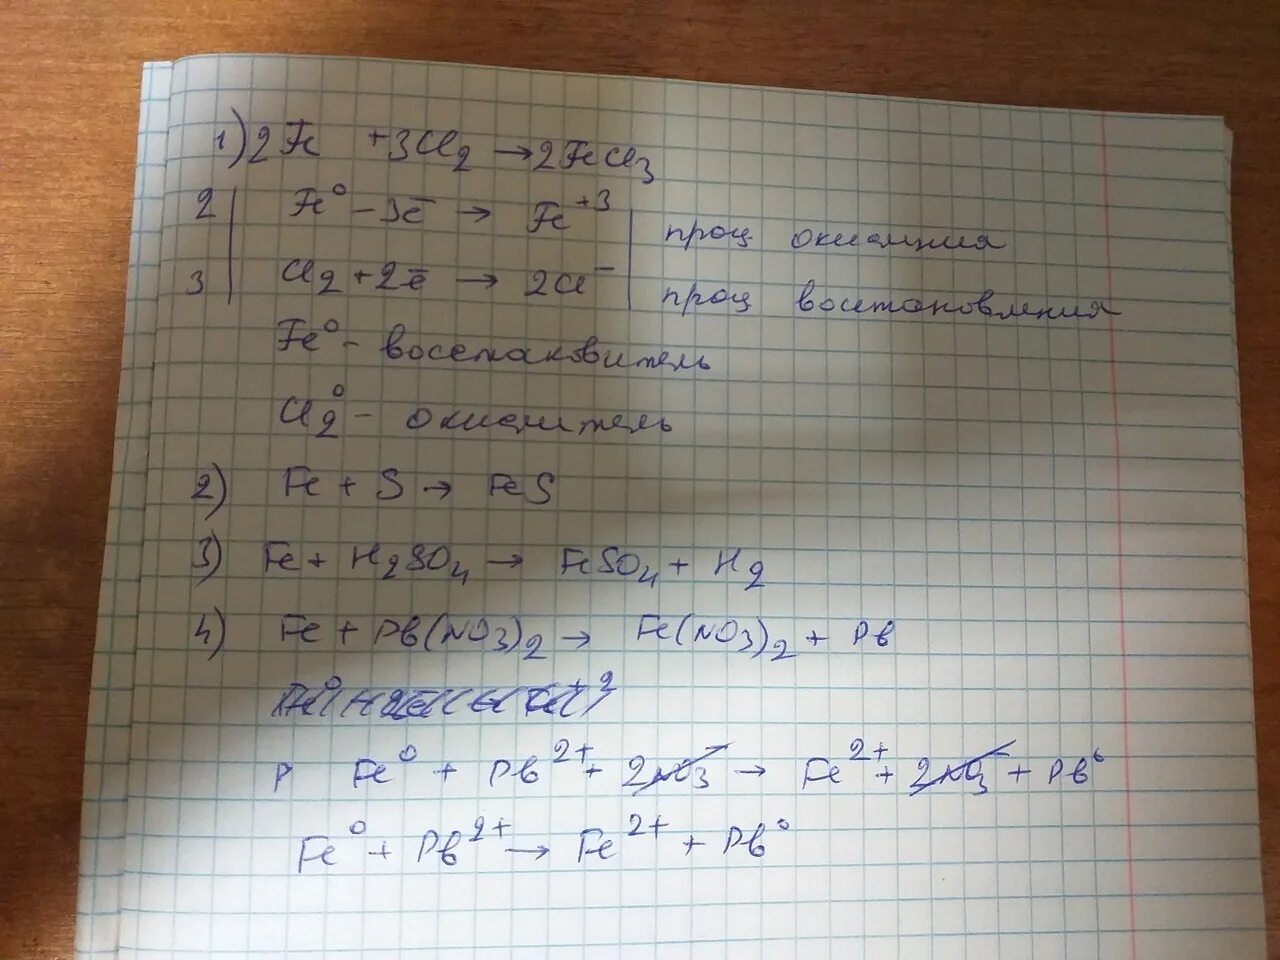 1) 2Fe + 3Cl₂ → 2FeCl₃
2 | Fe⁰ - 3ē → Fe⁺³ | проц окисления
3 | Cl₂ + 2ē → 2Cl⁻ | проц восстановления
Fe⁰ - восстановитель
Cl₂⁰ - окислитель
2) Fe + S → FeS
3) Fe + H₂SO₄ → FeSO₄ + H₂
4) Fe + Pb(NO₃)₂ → Fe(NO₃)₂ + Pb
Fe⁰ + Pb²⁺ + 2NO₃⁻ → Fe²⁺ + 2NO₃⁻ + Pb⁰
Fe⁰ + Pb²⁺ → Fe²⁺ + Pb⁰